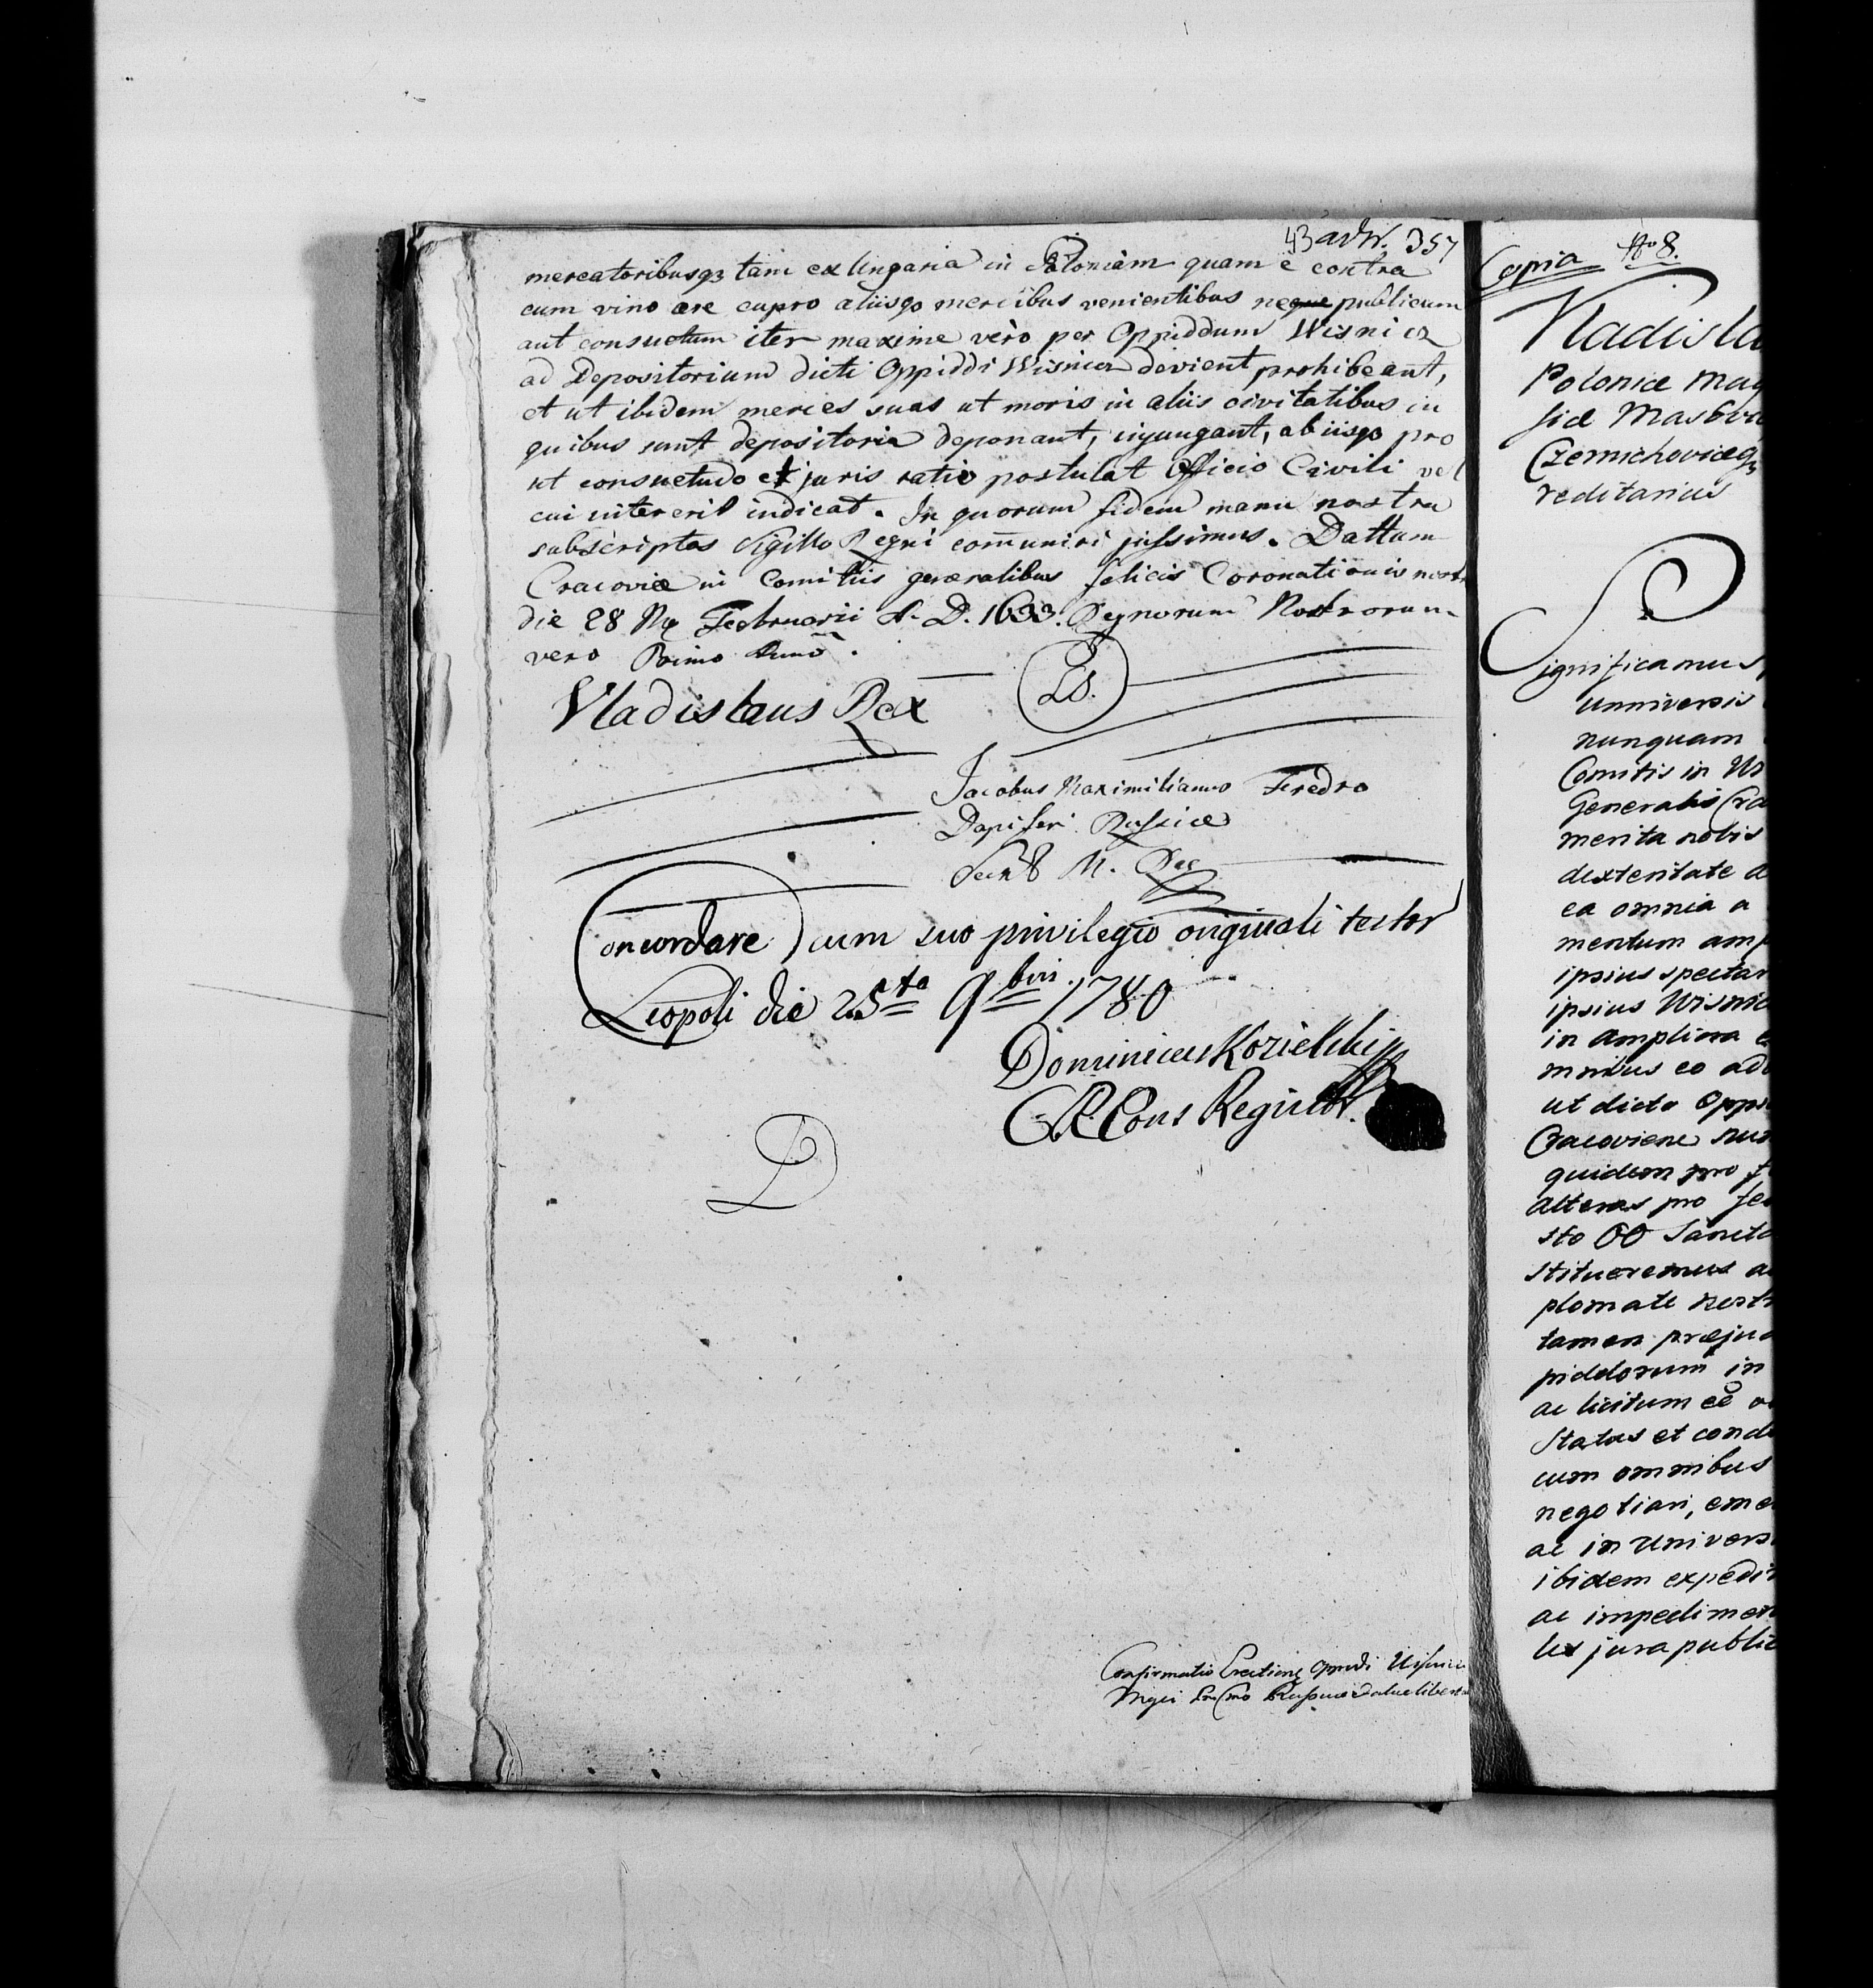 43 adw. 357
mercatoribusq3 tam ex Ungaria in Poloniam quam e contra
cum vino ære cupro aliisqo mercibus venientibus neque publicum
aut consuetum iter maxime vero per Oppiddum Wisnicz
ad Depositorium dicti Oppiddi Wisnicz devient prohibeant,
et ut ibidem merces suas ut moris in aliis civitatibus in
quibus sunt depositoria deponant, injungant, ab iisqo pro
ut consuetudo et juris ratio postulat Officio Civili vel
cui intererit indicat. In quorum fidem manu nostra
subscriptas Sigillo Regni com̄uniri jussimus. Dattum
Cracoviæ in Comitiis generalibus felicis Coronationis nostr
die 28 Februarii A. D. 1633. Regnorum Nostrorum
vero Primo Anno.
LS.
Vladislaus Rex
Jacobus Maximilianus Fredro
Dapiferi Russiæ
M.
Concordare cum suo privilegio originali testor
Leopoli die 25ta 9bris 1780
Dominicus Kozielski
Regist.
Confirmatio
Copia No 8.
Vladisla
Poloniæ Mag
siæ Masovi
Czernichoviæq3
reditarius
Significamus
Universis
nunquam
Comitis in Wi
Generalis Cra
merita nobis
dexteritate a
ea omnia a
mentum amp
ipsius spectan
ipsius Wisnic
in ampliora
mnibus eo ad
ut dicto Oppi
Cracoviene
quidem pro f
alteras pro fe
sto OO Sancto
stitueremus a
plomate nostr
tamen præjud
piddorum in
ac licitum eē
Status et cond
cum omnibus
negotiari, eme
ac in univers
ibidem expedi
ac impedimen
lex jura public